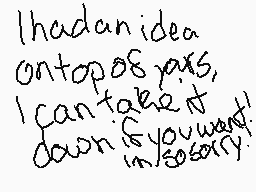 I had an idea
on top of yours,
I can take it
down if you want!
im so sorry